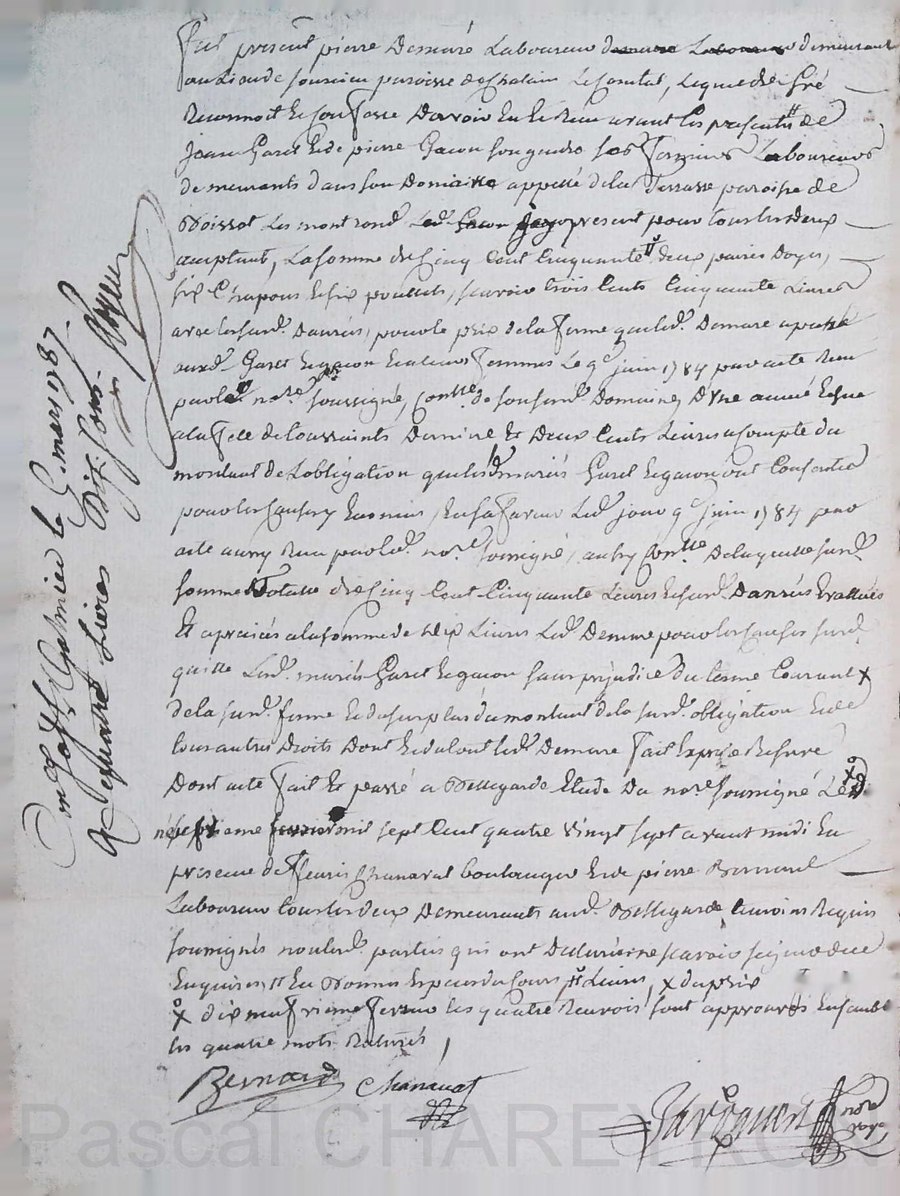 fut present pierre Demaré Laboureur demeurant
au Lieu de souvieu paroisse de Chalain Le Comtal, Lequel de Gré
Reconnoit Et Confesse D'avoir Eu Et Recu avant Les presentes de
Jean Garet Et de pierre Gacon son gendre ses fermiers Laboureurs
demeurants dans son Domaine appellé de la Terrasse paroisse de
Boisset Les montrond Led. Gacon present pour tous Les deux
acceptant, La somme de Cinq Cent Cinquante deux paires
six Chapons Et six poullets, scavoir trois Cents Cinquante Livres
avec Les surd. Danrées, pour le prix de la ferme que Led. Demare a passé
auxd. Garet Et gacon Le 9e juin 1784 par acte Recu
par le no.re soussigné, Contr.lé de son surd. Domaine, D'Une année Echue
a la fete de toussaints Derniere Et Deux Cents Livres a Compte du
montant de L'obligation que lesd. mariés Garet Et gacon ont Consentie
Led. jour 9e juin 1784 par
acte aussy Recu par led. no.re soussigné, aussy Contr.lé De laquelle surd.
somme Totale de Cinq Cent Cinquante Livres Et surd. Danrées Evalluées
Et apreciées a la somme de dix Livres Led. Demare
quitte Lesd. mariés Garet Et gacon sans préjudice du terme Courant x
de la surd. ferme Et du surplus du montant de la surd. obligation Et de
tous autres Droits Dont Et du tout led. Demare fait Expresse Reserve
Dont acte fait Et passé a Bellegarde Etude Du no.re soussigné Le
mil sept Cent quatre vingt sept avant midi En
presence de fleuris Chanavat boulanger Et de pierre Bernard
Laboureur tous les deux Demeurants aud. Bellegarde temoins Requis
soussignés non lesd. parties qui ont Declaré ne scavoir signer de ce
Enquises, # Livres, x du prix
x dix neuf fevrier les quatre Renvois sont approuvés Ensemble
les quatre mots Raturés,
Bernard Chanavat
no.re
royal
Con.lé a St Galmier le 6 mars 1787.
R quatre Livres Dix sous.
Pascal CHAREYRON